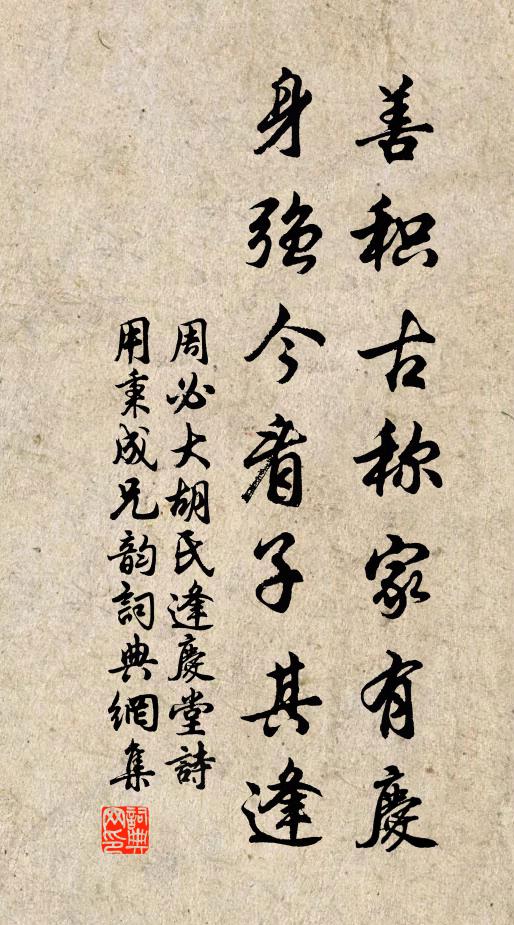 善积古称家有慶
身强今看子其逢
周必大胡氏逢慶堂詩
用秉成兄韵詞典網集
詞典
网印